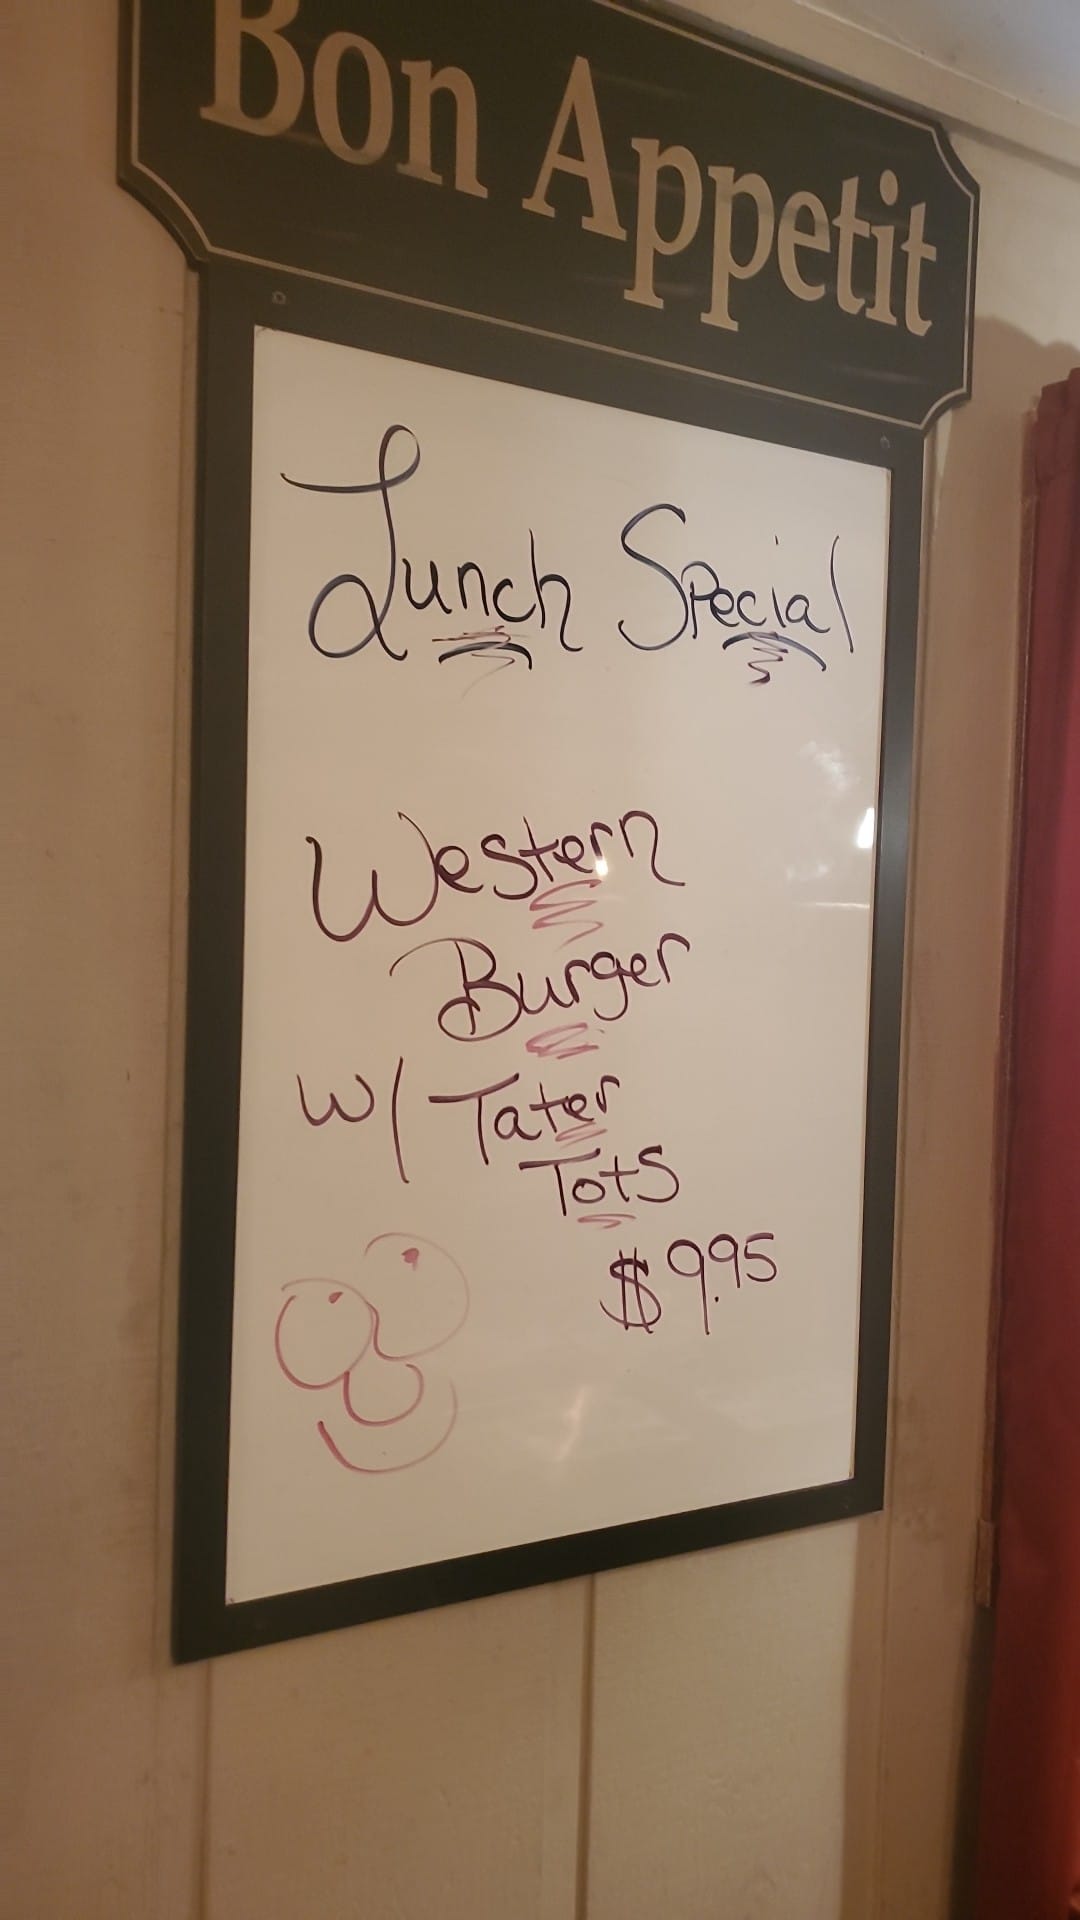 Bon Appetit
Lunch Special
Western
Burger
w/ Tater
Tots
$9.95